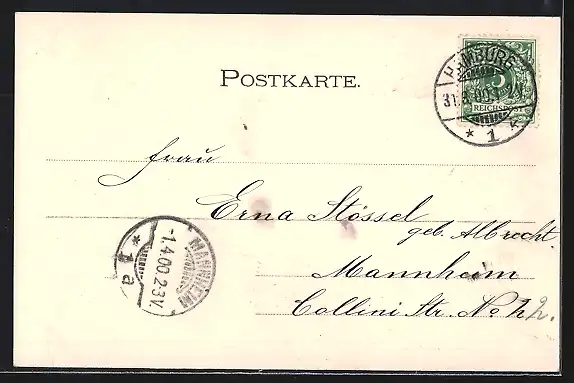 POSTKARTE.
HAMBURG
31.3.00.1-2N
* 1 k
5
REICHSPOST
Frau
Erna Stössel
geb. Albrecht.
Mannheim
Collini Str. No 22.
MANNHEIM
-1.4.00.2-3V.
* 1 a